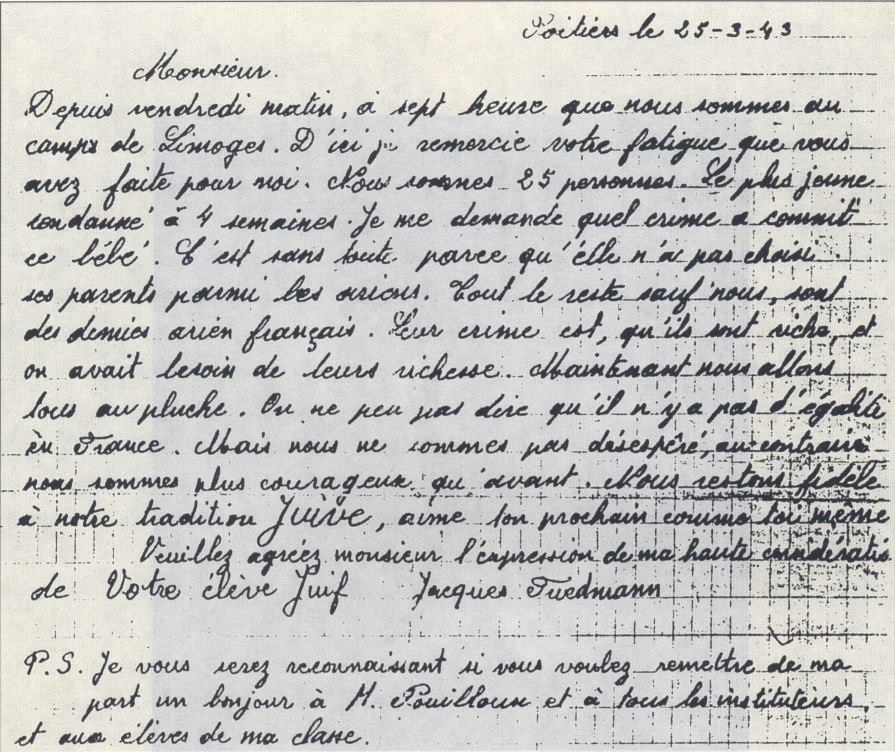 Poitiers le 25-3-43
Monsieur.
Depuis vendredi matin, à sept heure que nous sommes au
camps de Limoges. D'ici je remercie votre fatigue que vous
avez faite pour moi. Nous sommes 25 personnes. Le plus jeune
condanné à 4 semaines. Je me demande quel crime a commit
ce bébé. C'est sans toute parce qu'élle n'a pas choisi
ses parents parmi les ariens. Tout le reste sauf nous, sont
des demies arien français. Leur crime est, qu'ils sont riche, et
on avait besoin de leurs richesse. Maintenant nous allons
tous au pluche. On ne peu pas dire qu'il n'y a pas d'égalité
èn France. Mais nous ne sommes pas désespéré, au contraire
nous sommes plus courageux qu'avant. Nous restons fidèle
à notre tradition Juive, aime ton prochain comme toi même
Veuillez agréez monsieur l'expression de ma haute considératio
de Votre élève Juif Jacques Fuedmann
P.S. Je vous serez reconnaissant si vous voulez remettre de ma
part un bonjour à M. Pouilloux et à tous les instituteurs,
et aux élèves de ma classe.